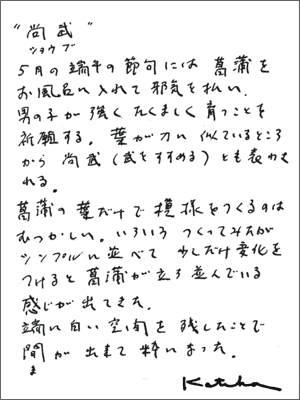 "尚武"
ショウブ
5月の端午の節句には 菖蒲を
お風呂に入れて邪気を払い、
男の子が強くたくましく育つことを
祈願する。葉が刀に似ているところ
から 尚武(武をすすめる)とも表わさ
れる。
菖蒲の葉だけで模様をつくるのは
むつかしい。いろいろつくってみたが
シンプルに並べて 少しだけ変化を
つけると菖蒲が立ち並んでいる
感じが出てきた。
端に白い空間を残したことで
間が出来て粋になった。
ま